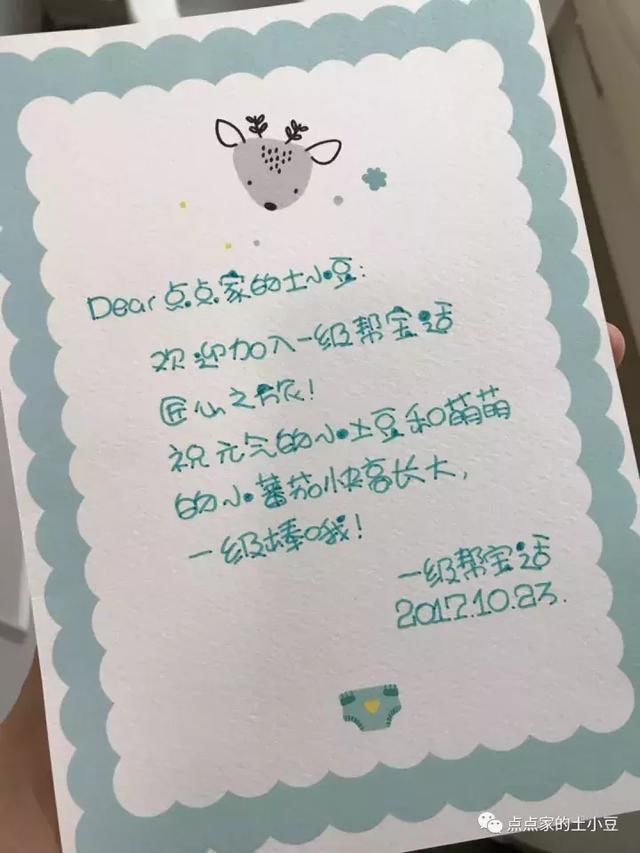 Dear点点家的土小豆:
欢迎加入一级帮宝适
匠心之旅!
祝元气的小土豆和萌萌
的小蕃茄快高长大,
一级棒哦!
一级帮宝适
2017.10.23.
点点家的土小豆